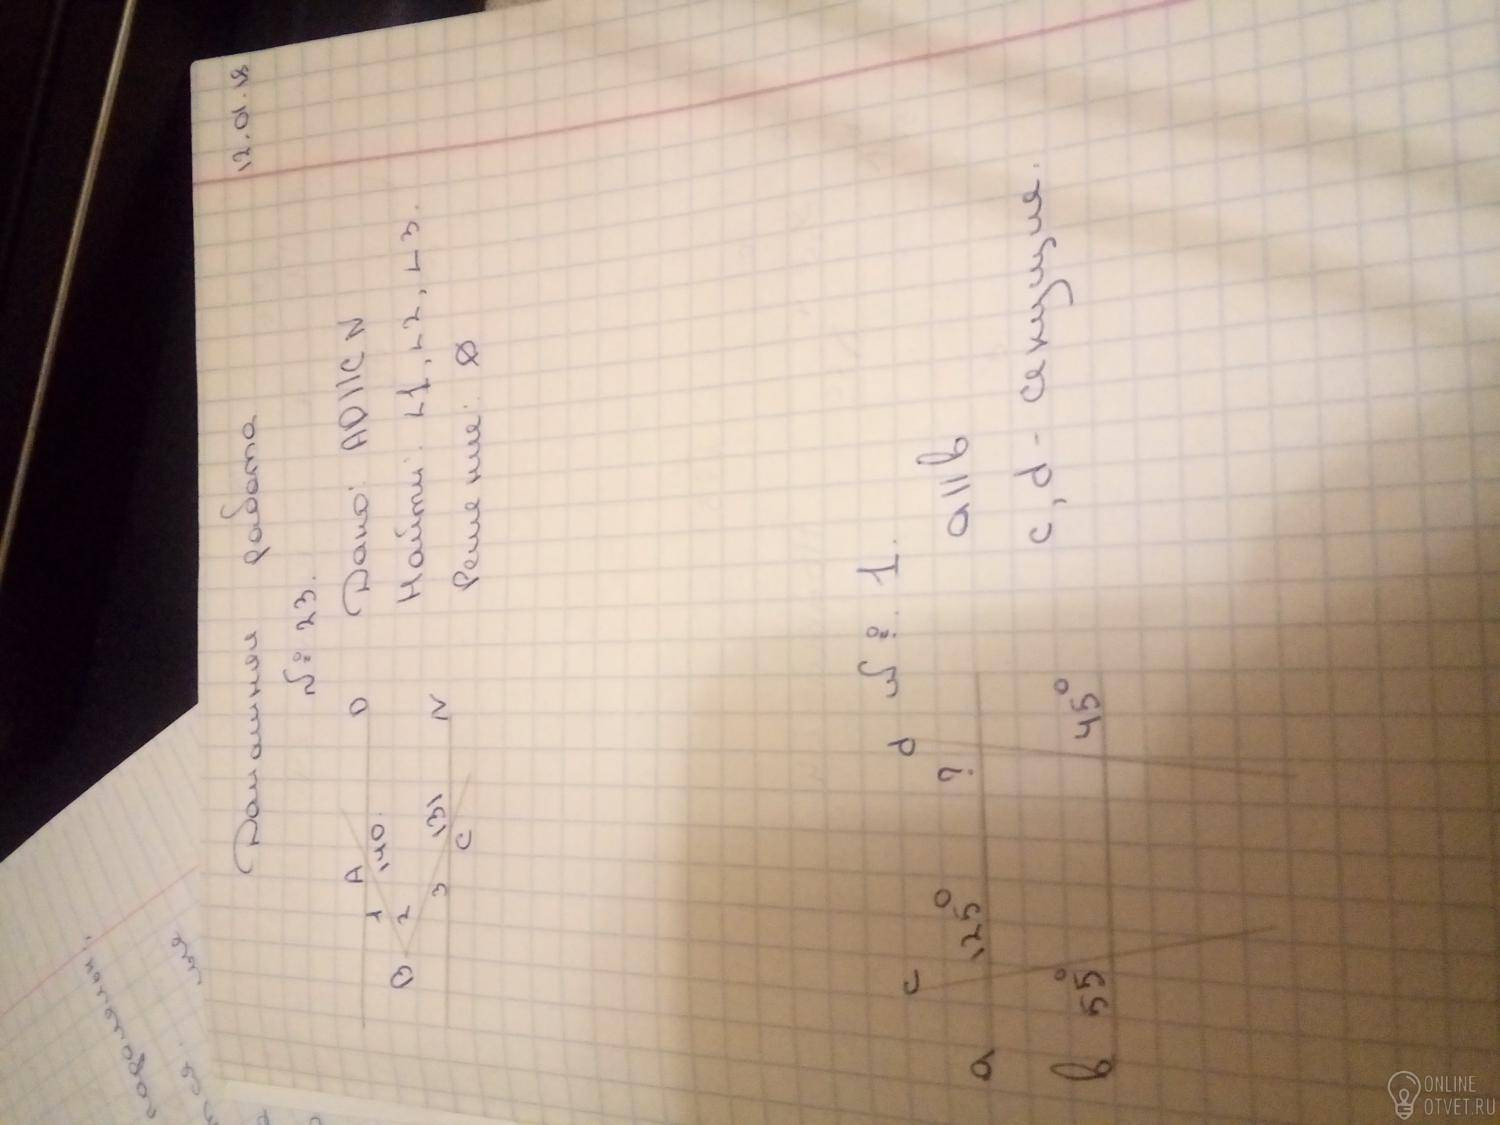 12.01.18
Домашняя работа
№ 23.
Дано: AD||CN
Найти: ∠1, ∠2, ∠3.
Решение: Ø
A D
1 140.
O 2
3 131 N
C
№ 1.
a||b
c, d - секущия.
c d
125° ?
a
55° 45°
b
ONLINE
OTVET.RU